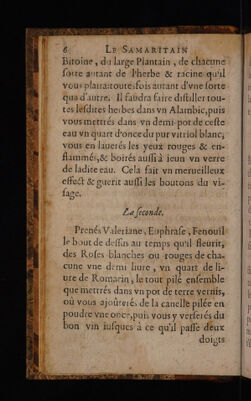 6 LE SAMARITAIN
Bitoine, du large Plantain, de chacune
sorte autant de l'herbe & racine qu'il
vous plaira: toutesfois autant d'vne sorte
que d'autre. Il faudra faire distiller tou-
tes lesdites herbes dans vn Alambic, puis
vous mettrés dans vn demi-pot de ceste
eau vn quart d'once du pur vitriol blanc,
vous en lauerés les yeux rouges & en-
flammés, & boirés aussi à ieun vn verre
de ladite eau. Cela fait vn merueilleux
effect & guerit aussi les boutons du vi-
sage.
La seconde.
Prenés Valeriane, Euphrase, Fenouil
le bout de dessus au temps qu'il fleurit,
des Roses blanches ou rouges de cha-
cune vne demi liure, vn quart de li-
ure de Romarin, le tout pilé ensemble
que mettrés dans vn pot de terre vernis,
où vous ajoûterés de la canelle pilée en
poudre vne once, puis vous y verserés du
bon vin iusques à ce qu'il passe deux
doigts